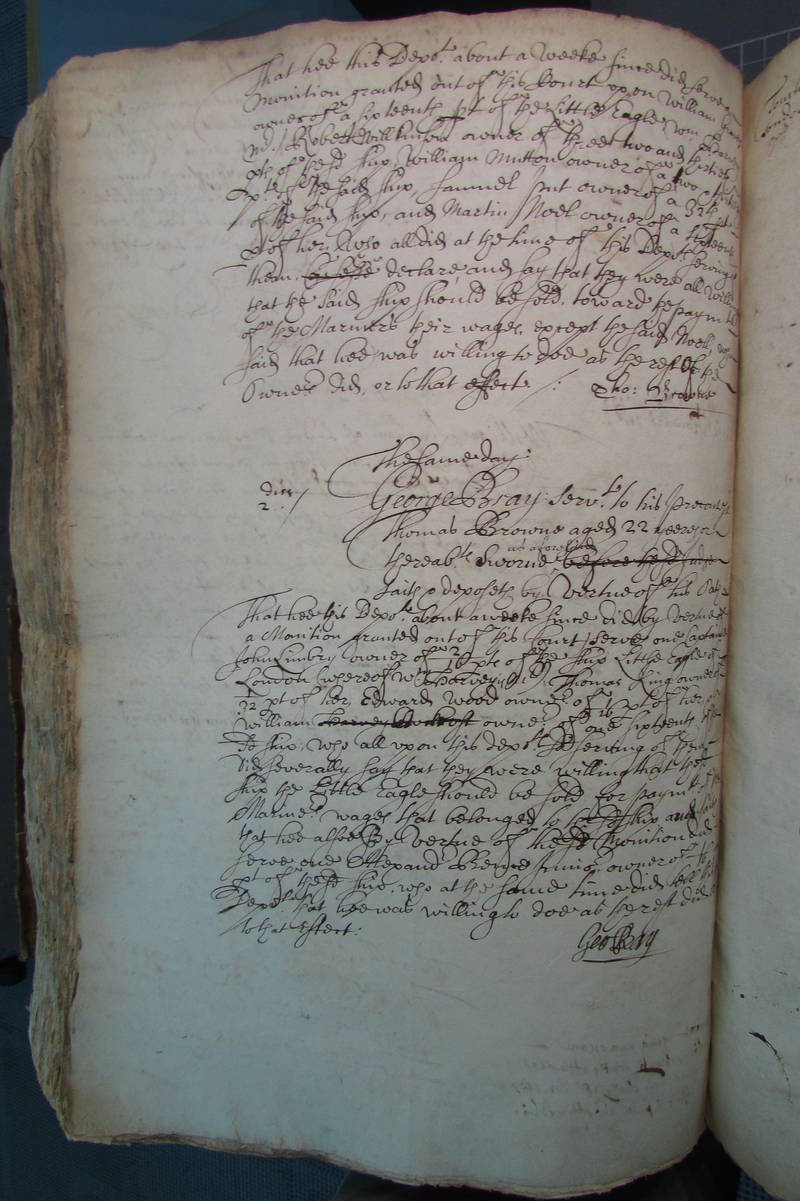 That hee this Depo:t about a weeke since did serve a
Monition granted out of this Court upon William
owner of a sixteenth pt of the Little Eagle, Wm
Robert Wilkinson owner of three two and thirtieth
pts of the sd ship, William Mutton owner of a two
pte of the said ship, Samuel owner of a 32th pt
of the said ship, and Martin Noel owner of a sixteenth
pt of her, who all did at the time of this Depo:ts serving
them, declare, and say that they were all willing
that the said ship should be sold, toward the paymt
of the Mariners their wages, except the said Noell, who
said that hee was willing to doe as the rest of the
Owners did, or to that effect /: Tho: Browne
The same day:
dict /
2.
George Bray serv:t to his precontest
Thomas Browne aged 22 yeeres or
thereab:ts Sworne before the sd Judge
as aforesaid
saith & deposeth by vertue of his Oath
That hee this Depo:t about a weeke since did by vertue of
a Monition granted out of this Court serve one Captaine
John Limbry owner of pts of the ship Little Eagle of
London (whereof Wm Harvey Mr) Thomas King owner of
1/32 pt of her, Edward Wood owner of 1/16 pt of her,
William owner of one sixteenth
sd ship, who all upon this depo:ts serving of them
did severally say that they were willing that the
ship the Little Eagle should be sold for paymt of
Marinrs wages that belonged to the sd ship and saith
that hee alsoe By vertue of the sd Monition did
serve one owner of
pt of the sd ship, who at the same time did tell this
Depo:t that hee was willing to doe as the rest did
to that effect:
Geo Bray